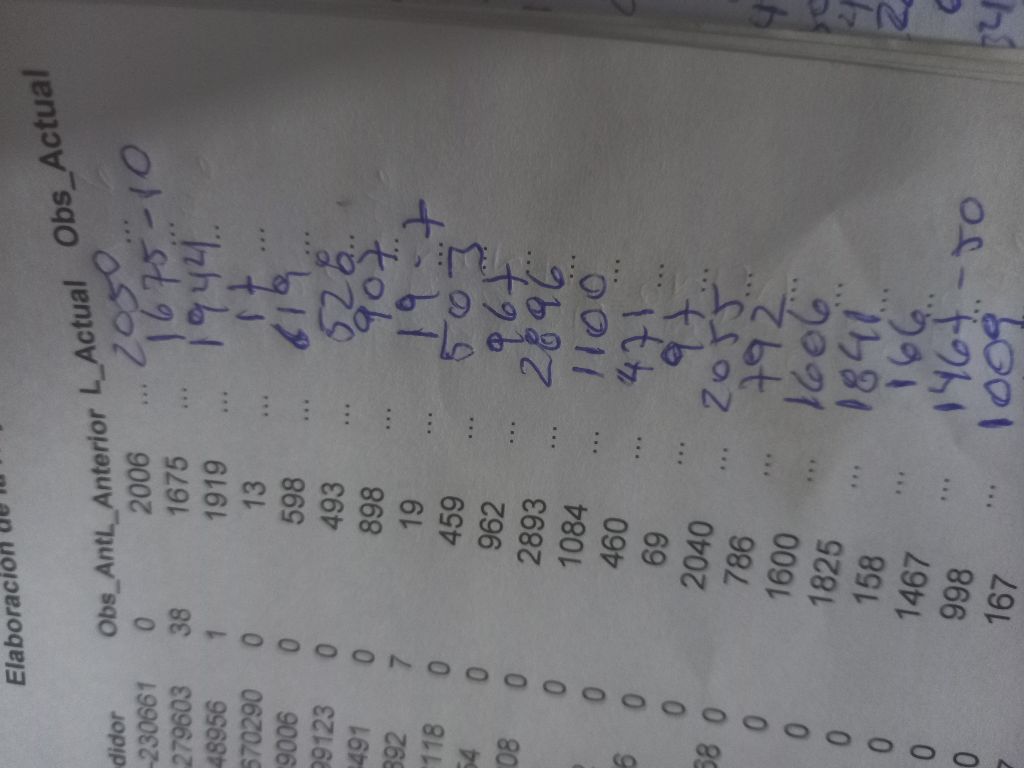 Elaboración de la
didor Obs_AntL_Anterior L_Actual Obs_Actual
-230661 0 2006 ... 2050 ...
279603 38 1675 ... 1675 - 10 ...
48956 1 1919 ... 1944 ...
670290 0 13 ... 17 ...
9006 0 598 ... 619 ...
99123 0 493 ... 528 ...
8491 0 898 ... 907 ...
892 7 19 ... 19 - 7 ...
1118 0 459 ... 503 ...
54 0 962 ... 967 ...
08 0 2893 ... 2896 ...
0 1084 ... 1100 ...
0 460 ... 471 ...
6 0 69 ... 97 ...
0 2040 ... 2055 ...
68 0 786 ... 792 ...
0 1600 ... 1606 ...
0 1825 ... 1841 ...
0 158 ... 166 ...
0 1467 ... 1467 - 50 ...
0 998 ... 1009 ...
0 167